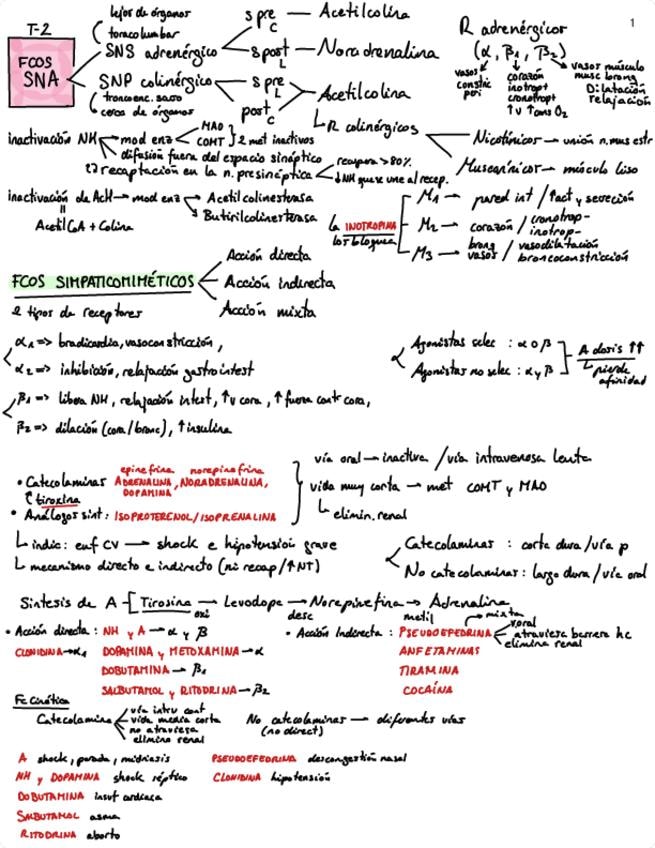 1
T-2
FCOS
SNA
lejos de órganos
toracolumbar
SNS adrenérgico
s pre C — Acetilcolina
s post L — Noradrenalina
SNP colinérgico
troncoenc. sacro
cerca de órganos
s pre L
post C
Acetilcolina
R adrenérgicor
(α, β1, β2)
vasos constric peri
corazón
inotropt
cronotropt
↑v ↑cons O2
vasos músculo
musc bronq
Dilatación
relajación
R colinérgicos
Nicotínicor → unión n. mus estr
Muscarínicor → músculo liso
inactivación NH → mod enz
MAO
COMT } 2 met inactivos
difusión fuera del espacio sináptico
recaptación en la n. presináptica
recupera >80%
↓NH que se une al recep.
inactivación de AcH → mod enz
Acetilcolinesterasa
Butirilcolinesterasa
Acetil CoA + Colina
la INOTROPINA
los bloquea
M1 → pared int / ↑act y secreción
M2 → corazón / cronotrop-
inotrop-
M3 → bronq / vasodilatación
vasos / broncoconstricción
FCOS SIMPATICOMIMÉTICOS
Acción directa
Acción indirecta
Acción mixta
2 tipos de receptores
α1 => bradicardia, vasoconstricción,
α2 => inhibición, relajación gastrointest
β1 => libera NH, relajación intest, ↑v cora, ↑ fuerza contr cora,
β2 => dilación (cora/bronc), ↑ insulina
Agonistas selec : α o β
Agonistas no selec : α y β
A dosis ↑↑
pierde
afinidad
epinefrina norepinefrina
• Catecolaminas ADRENALINA, NORADRENALINA,
DOPAMINA
tiroxina
• Análogos sint: ISOPROTERENOL/ISOPRENALINA
vía oral → inactiva / vía intravenosa lenta
vida muy corta → met COMT y MAO
elimin. renal
indic: enf CV → shock e hipotensión grave
mecanismo directo e indirecto (ni recap/↑NT)
Catecolaminas : corta dura/vía p
No catecolaminas: larga dura/vía oral
Síntesis de A - [Tirosina → Levodopa → Norepinefrina → Adrenalina
oxi desc metil
• Acción directa: NH y A → α y β
CLONIDINA → α1 DOPAMINA y METOXAMINA → α
DOBUTAMINA → β1
SALBUTAMOL y RITODRINA → β2
• Acción Indirecta : PSEUDOEFEDRINA
mixta
v.oral
atraviesa barrera hc
elimina renal
ANFETAMINAS
TIRAMINA
COCAÍNA
Fc Cinética
Catecolamina
vía intrv cont
vida media corta
no atraviesa
elimino renal
No catecolaminas → diferentes vías
(no direct)
A shock, parada, midriasis
NH y DOPAMINA shock séptico
DOBUTAMINA insuf cardiaca
SALBUTAMOL asma
RITODRINA aborto
PSEUDOEFEDRINA descongestión nasal
CLONIDINA hipotensión